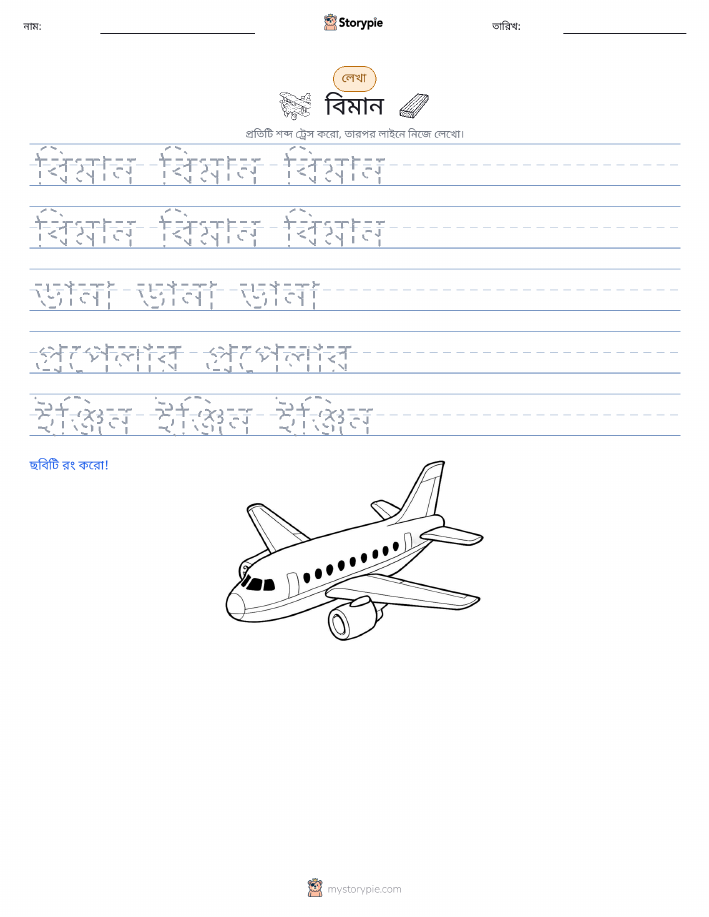 নাম: Storypie তারিখ:
লেখা
বিমান
প্রতিটি শব্দ ট্রেস করো, তারপর লাইনে নিজে লেখো।
বিমান বিমান বিমান
বিমান বিমান বিমান
ডানা ডানা ডানা
প্রপেলার প্রপেলার
ইঞ্জিন ইঞ্জিন ইঞ্জিন
ছবিটি রং করো!
mystorypie.com